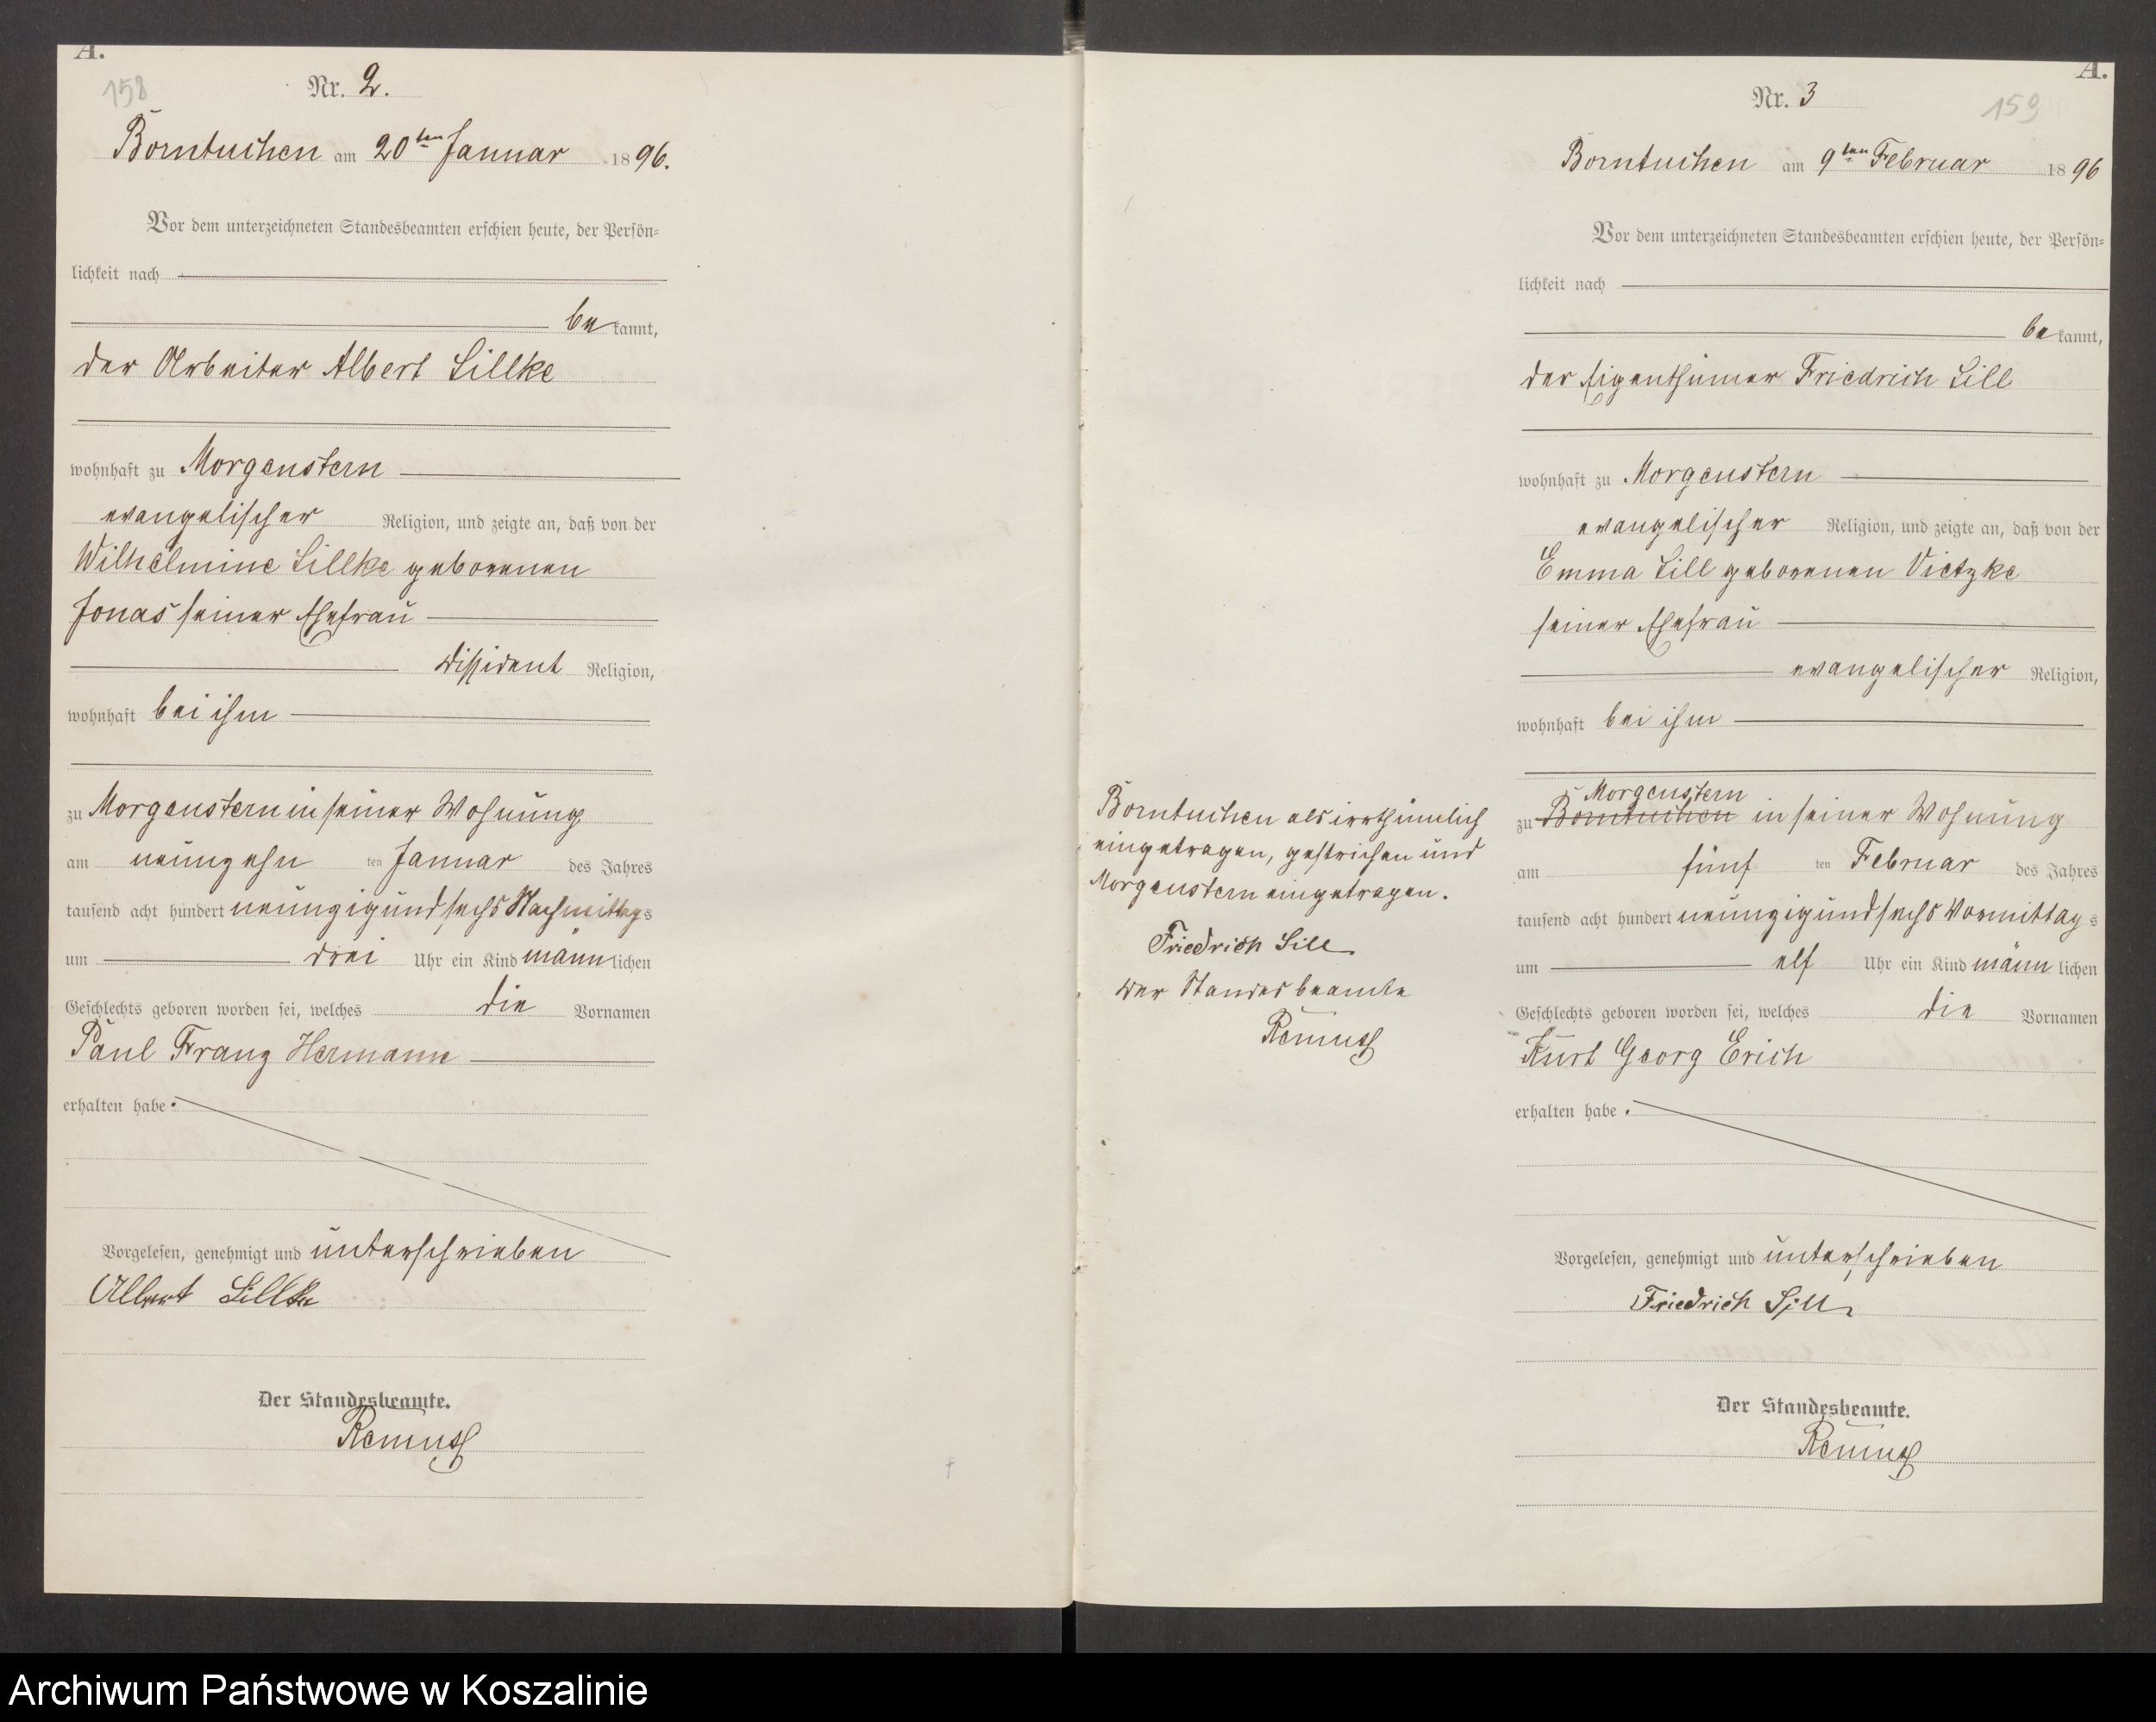 A.
158
Nr. 2.
Borntuchen am 20ten Januar 1896.
Vor dem unterzeichneten Standesbeamten erschien heute, der Persön-
lichkeit nach
bekannt,
der Arbeiter Albert Lillke
wohnhaft zu Morgenstern
evangelischer Religion, und zeigte an, daß von der
Wilhelmine Lillke geborenen
Jonas seiner Ehefrau
Dissident Religion,
wohnhaft bei ihm
zu Morgenstern in seiner Wohnung
am neunzehn ten Januar des Jahres
tausend acht hundert neunzig und sechs Nachmittags
um drei Uhr ein Kind männlichen
Geschlechts geboren worden sei, welches die Vornamen
Paul Franz Hermann
erhalten habe.
Vorgelesen, genehmigt und unterschrieben
Albert Lillke
Der Standesbeamte.
Remus
A.
Nr. 3
159
Borntuchen am 9ten Februar 1896
Vor dem unterzeichneten Standesbeamten erschien heute, der Persön-
lichkeit nach
bekannt,
der Eigenthümer Friedrich Lill
wohnhaft zu Morgenstern
evangelischer Religion, und zeigte an, daß von der
Emma Lill geborenen Vietzke
seiner Ehefrau
evangelischer Religion,
wohnhaft bei ihm
Morgenstern
zu Borntuchen in seiner Wohnung
am fünf ten Februar des Jahres
tausend acht hundert neunzig und sechs Vormittags
um elf Uhr ein Kind männlichen
Geschlechts geboren worden sei, welches die Vornamen
Kurt Georg Erich
erhalten habe.
Vorgelesen, genehmigt und unterschrieben
Friedrich Lill
Der Standesbeamte.
Remus
Borntuchen als irrthümlich
eingetragen, gestrichen und
Morgenstern eingetragen.
Friedrich Lill
Der Standesbeamte
Remus
Archiwum Państwowe w Koszalinie